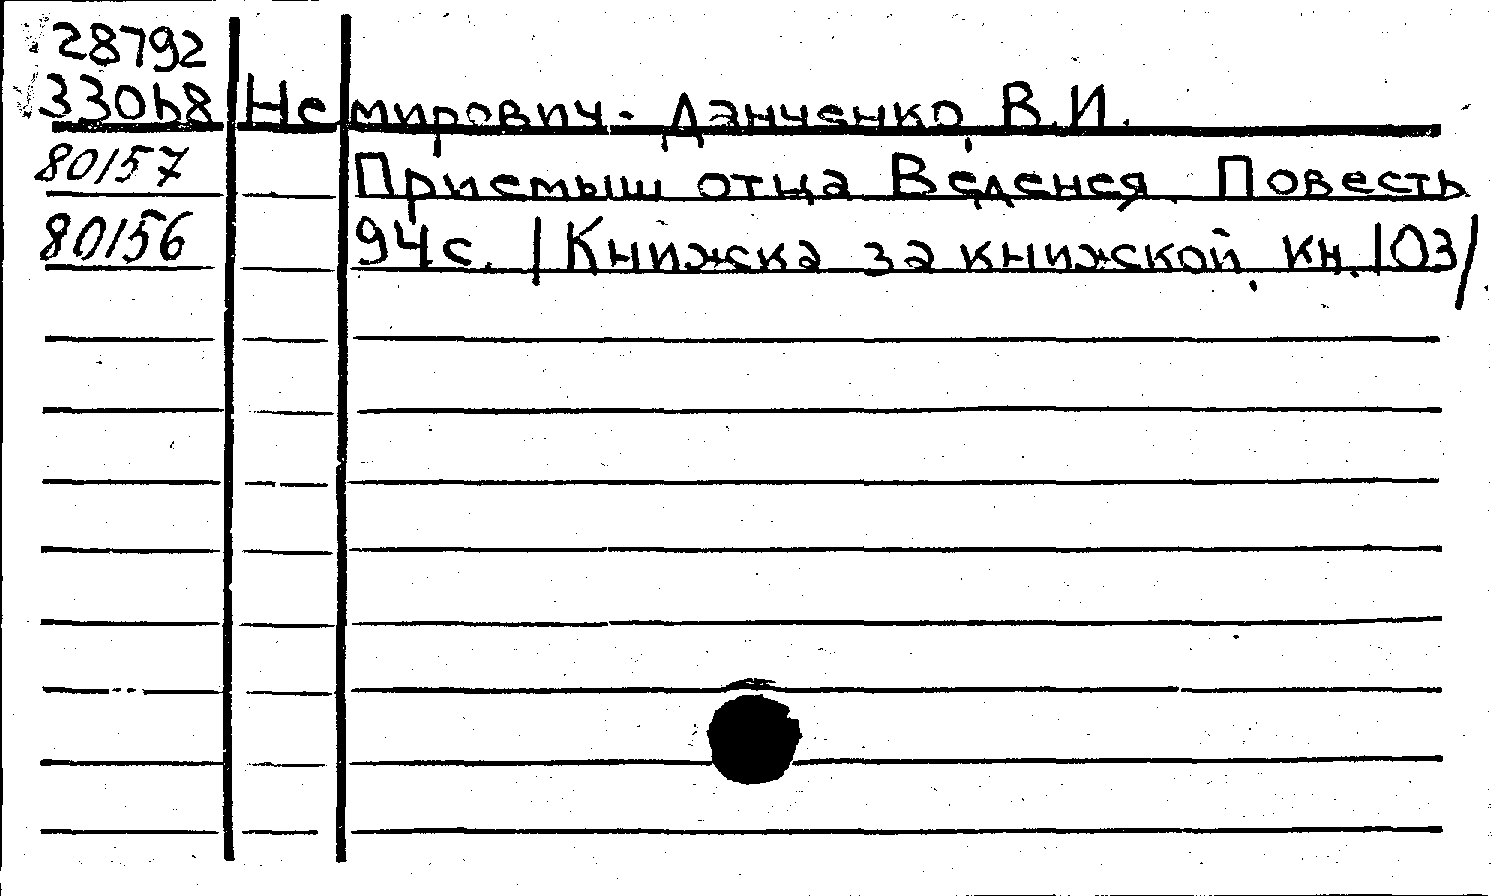 28792
33068 Немирович-Данченко В.И.
80157 Приемыш отца Веденея. Повесть
80156 94с. /Книжка за книжкой, кн.103/.